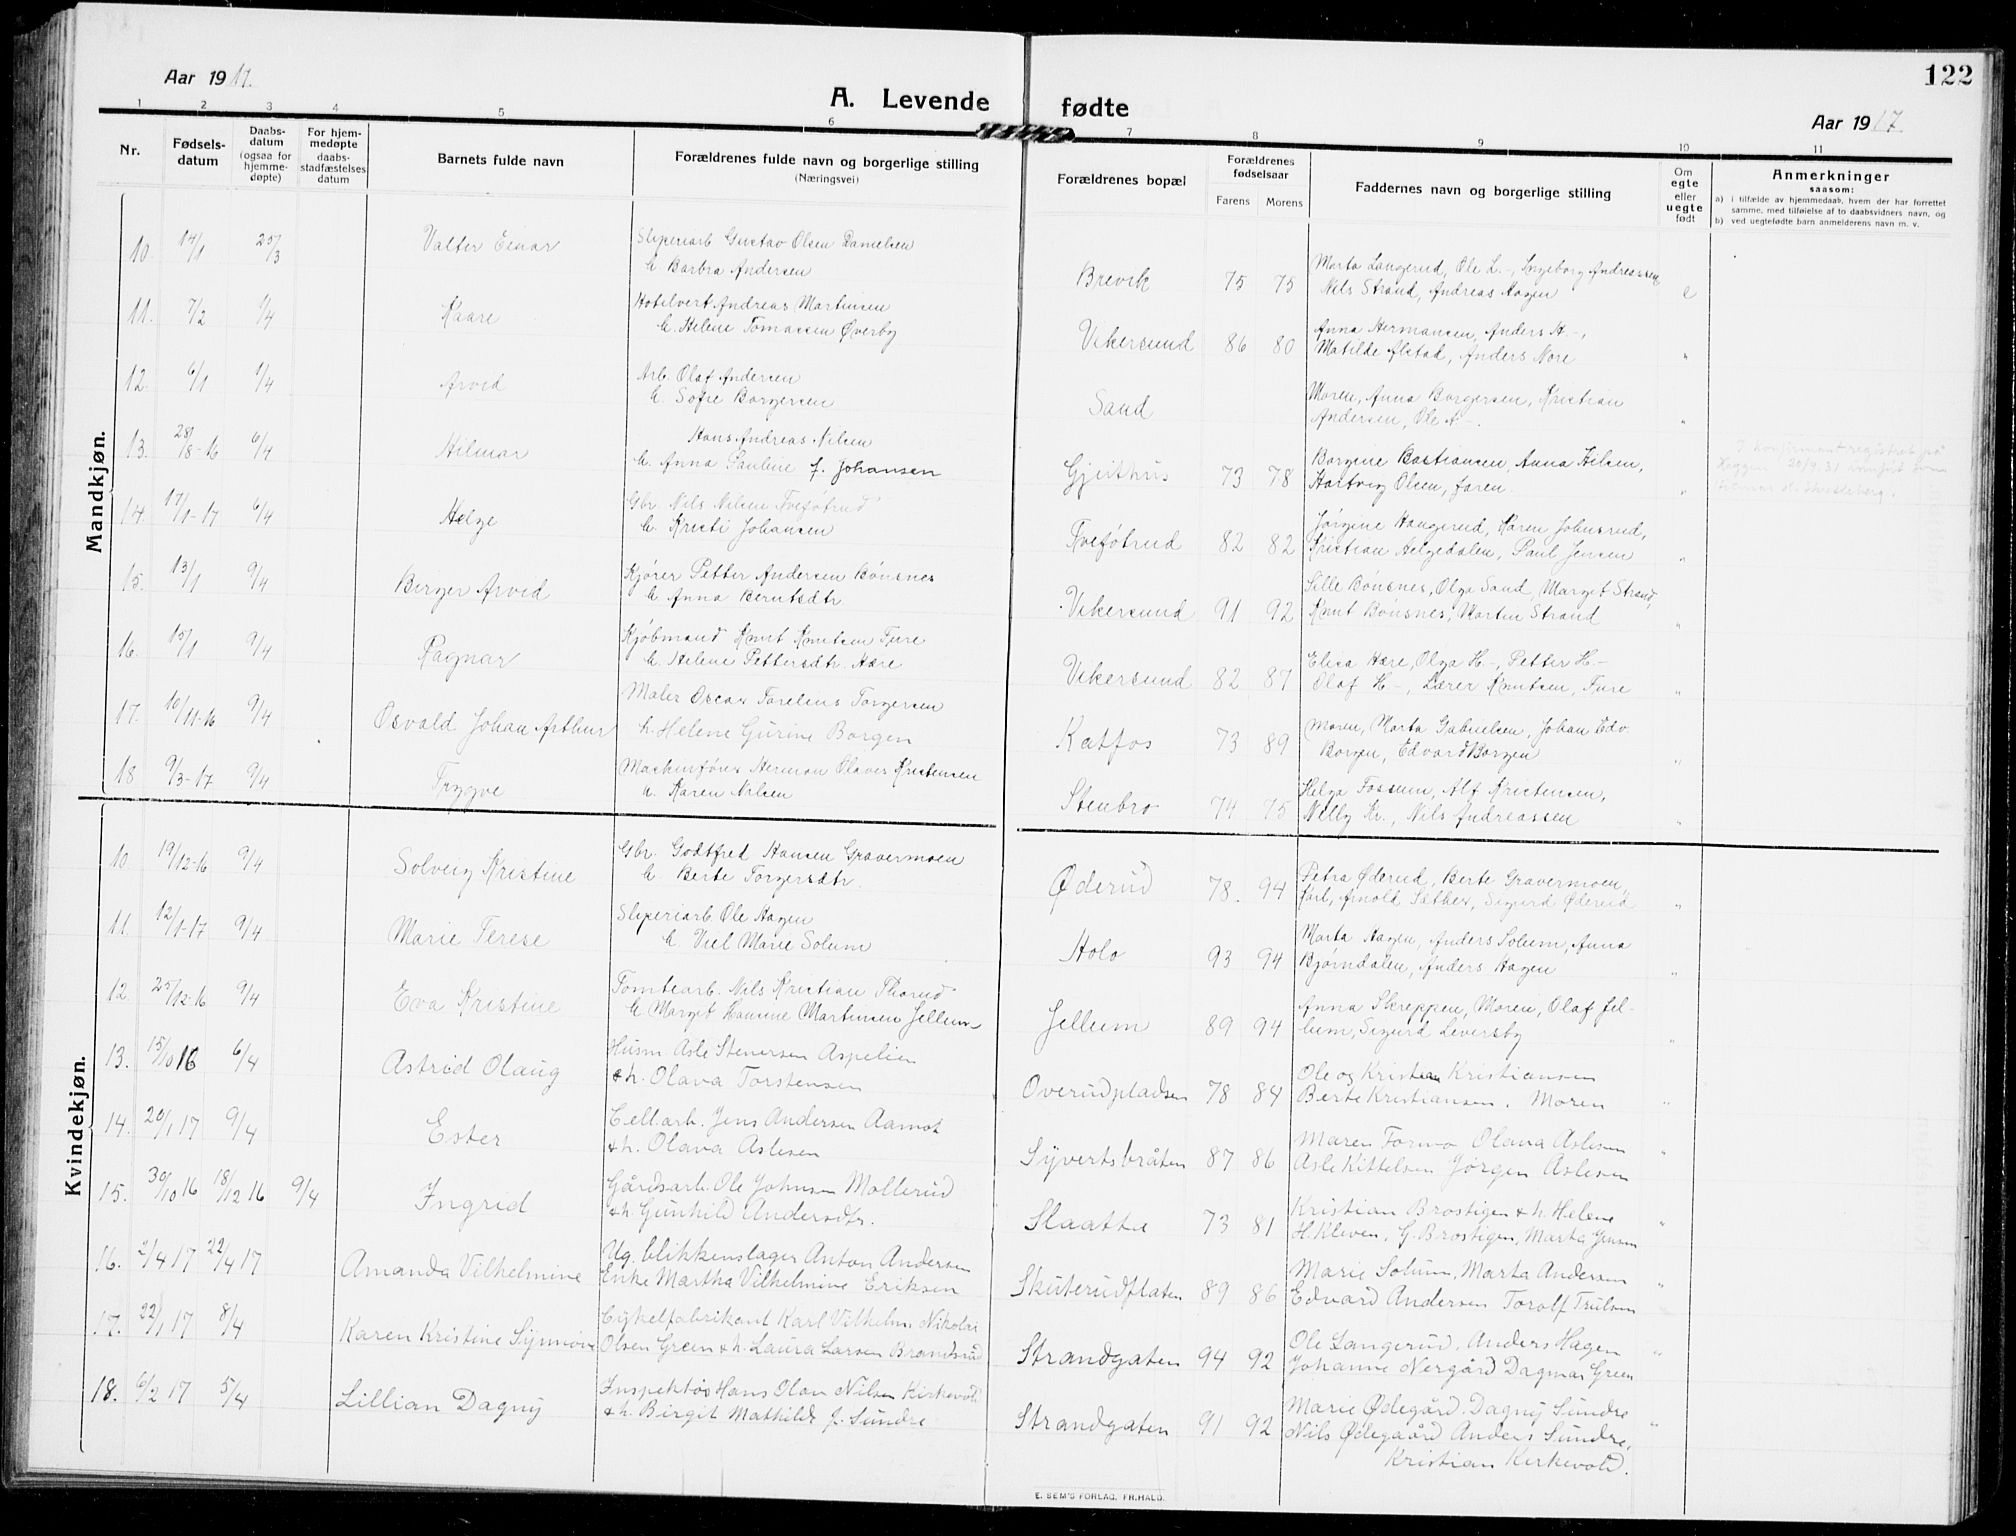 122
Aar 1917.
A. Levende fødte
Aar 1917.
1 2 3 4 5 6 7 8 9 10 11
Nr.
Fødsels-
datum
Daabs-
datum
(ogsaa for
hjemme-
døpte)
For hjem-
medøpte
daabs-
stadfæstelses
datum
Barnets fulde navn
Forældrenes fulde navn og borgerlige stilling
(Næringsvei)
Forældrenes bopæl
Forældrenes
fødselsaar
Farens Morens
Faddernes navn og borgerlige stilling
Om
egte
eller
uegte
født
Anmerkninger
saasom:
a) i tilfælde av hjemmedaab, hvem der har forrettet
samme, med tilføielse af to daabsvidners navn, og
b) ved uegtefødte barn anmelderens navn m. v.
Mandkjøn.
10. 14/1 25/3 Valter Einar Sliperiarb. Gustav Olsen Danielsen
h. Barbra Andersen
Brevik 75 75 Marta Langerud, Ole L. -, Ingeborg Andreassen,
Nils Strand, Andreas Hagen e
11. 7/2 1/4 Kaare Hotelvert Andreas Martinsen
h. Helene Tomassen Øverby
Vikersund 86 80 Anna Hermansen, Anders H. -,
Matilde Alstad, Anders Nore "
12. 6/1 1/4 Arvid Arb. Olaf Andersen
h. Sofie Borgersen
Sand Moren, Anna Borgersen, Kristian
Andersen, Ole A. -. "
13. 28/8-16 6/4 Hilmar Hans Andreas Nilsen
h. Anna Pauline f. Johansen
Gjeithus 73 78 Borgine Bastiansen, Anna Nilsen,
Hartvig Olsen, faren. "
14. 17/1-17 6/4 Helge Gbr. Nils Nilsen Tveføtrud
h. Kristi Johansen
Tveføtrud 82 82 Jørgine Haugerud, Karen Johnsrud,
Kristian Helgedalen, Paul Jensen "
15. 13/1 9/4 Berger Arvid Kjører Petter Andersen Bønsnes
h. Anna Berntsdtr.
Vikersund 91 92 Sille Bønsnes, Olga Sand, Marget Strand,
Knut Bønsnes, Martin Strand "
16. 15/1 9/4 Ragnar Kjøbmand Knut Knutsen Ture
h. Helene Pettersdtr. Hære
Vikersund 82 87 Elisa Hære, Olga H. -, Petter H. -
Olaf H -, Lærer Knutsen, Ture "
17. 10/11-16 9/4 Osvald Johan Arthur Maler Oscar Torelius Torgersen
h. Helene Gurine Borgen
Katfos 73 89 Moren, Marta Gabrielsen, Johan Edv.
Borgen, Edvard Borgen "
18 9/3-17 9/4 Trygve Maskinfører Herman Olaves Kristensen
h. Karen Nilsen
Stenbro 74 75 Helga Fossum, Alf Kristensen,
Nelly Kr., Nils Andreassen "
Kvindekjøn.
10. 19/12-16 9/4 Solveig Kristine Gbr. Godtfred Hansen Gravermoen
h. Berte Torgersdtr.
Øderud 78. 94 Petra Øderud, Berte Gravermoen,
Karl, Arnold Sæther, Sigurd Øderud "
11. 12/1-17 9/4 Marie Terese Sliperiarb. Ole Hagen
h. Viel Marie Solum
Holo 93 94 Marta Hagen, Anders Solum, Anna
Bjørndalen, Anders Hagen "
12. 25/12-16 9/4 Eva Kristine Tomtearb. Nils Kristian Thorud
h. Marget Hansine Martensen Jellum
Jellum 89 94 Anna Skreppen, Moren, Olaf Jel-
lum, Sigurd Leversby "
13. 15/10 16 6/4 Astrid Olaug Husm. Asle Stenersen Aspelien
& h. Olava Torstensen
Overudpladsen 78 84 Ole og Kristian Kristiansen
Berte Kristiansen. Moren "
14. 20/1 17 9/4 Ester Cell.arb. Jens Andersen Aamot
& h. Olava Aslesen
Syvertsbråten 87 86 Maren Formo Olava Aslesen
Asle Kittelsen Jørgen Aslesen "
15. 30/10 16 18/12 16 9/4 Ingrid Gårdsarb. Ole Johnsen Mollerud
& h. Gunhild Andersdtr.
Slaatta 73 81 Kristian Brostigen & h. Helene
H. Kleven, G. Brostigen, Marta Jensen "
16. 2/4 17 22/4 17 Amanda Vilhelmine Ug. blikkenslager Anton Andersen
Enke Martha Vilhelmine Eriksen
Skuterudflaten 89 86 Marie Solum, Marta Andersen
Edvard Andersen Torolf Trulsen "
17. 22/1 17 8/4 Karen Kristine Synnøve Cykelfabrikant Karl Vilhelm Nikolai
Olsen Green & h. Laura Larsen Brandsrud
Strandgaten 94 92 Ole Langerud, Anders Hagen
Johanne Nergård Dagmar Green "
18. 6/2 17 5/4 Lillian Dagny Inspektør Hans Olan Nilsen Kirkevold
& h. Birgit Mathilde f. Sundre
Strandgaten 91 92 Marie Ødegård. Dagny Sundre
Nils Ødegaard Anders Sundre,
Kristian Kirkevold. "
E. SEM'S FORLAG, FR.HALD.